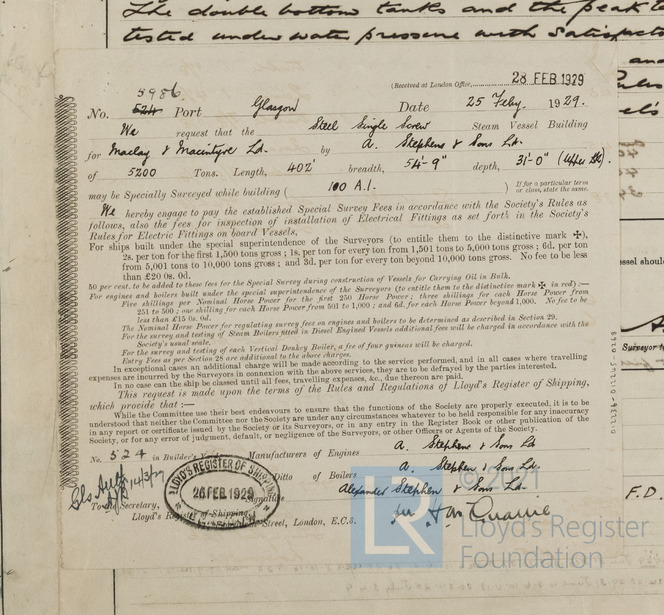 The double bottom tanks and the peak
tested under water pressure with
5986
(Received at London Office, 28 FEB 1929
No. 524 Port Glasgow Date 25 Feby. 1929.
We request that the Steel Single Screw Steam Vessel Building
for Maclay & Macintyre Ld. by A. Stephen & Sons Ld.
of 5200 Tons. Length, 402' breadth, 54'-9" depth, 31'-0" (Upper Dk).
may be Specially Surveyed while building ( 100 A.1. ) If for a particular term or class, state the same.
We hereby engage to pay the established Special Survey Fees in accordance with the Society's Rules as
follows, also the fees for inspection of installation of Electrical Fittings as set forth in the Society's
Rules for Electric Fittings on board Vessels,
For ships built under the special superintendence of the Surveyors (to entitle them to the distinctive mark ✠),
2s. per ton for the first 1,500 tons gross; 1s. per ton for every ton from 1,501 tons to 5,000 tons gross; 6d. per ton
from 5,001 tons to 10,000 tons gross; and 3d. per ton for every ton beyond 10,000 tons gross. No fee to be less
than £20 0s. 0d.
50 per cent. to be added to these fees for the Special Survey during construction of Vessels for Carrying Oil in Bulk.
For engines and boilers built under the special superintendence of the Surveyors (to entitle them to the distinctive mark ✠ in red):—
Five shillings per Nominal Horse Power for the first 250 Horse Power; three shillings for each Horse Power from
251 to 500; one shilling for each Horse Power from 501 to 1,000; and 6d. for each Horse Power beyond 1,000. No fee to be
less than £15 0s. 0d.
The Nominal Horse Power for regulating survey fees on engines and boilers to be determined as described in Section 29.
For the survey and testing of Steam Boilers fitted in Diesel Engined Vessels additional fees will be charged in accordance with the
Society's usual scale.
For the survey and testing of each Vertical Donkey Boiler, a fee of four guineas will be charged.
Entry Fees as per Section 28 are additional to the above charges.
In exceptional cases an additional charge will be made according to the service performed, and in all cases where travelling
expenses are incurred by the Surveyors in connexion with the above services, they are to be defrayed by the parties interested.
In no case can the ship be classed until all fees, travelling expenses, &c., due thereon are paid.
This request is made upon the terms of the Rules and Regulations of Lloyd's Register of Shipping,
which provide that:—
While the Committee use their best endeavours to ensure that the functions of the Society are properly executed, it is to be
understood that neither the Committee nor the Society are under any circumstances whatever to be held responsible for any inaccuracy
in any report or certificate issued by the Society or its Surveyors, or in any entry in the Register Book or other publication of the
Society, or for any error of judgment, default, or negligence of the Surveyors, or other Officers or Agents of the Society.
No. 524 in Builder's Manufacturers of Engines A. Stephen & Sons Ld
Ditto of Boilers A. Stephen & Sons Ld.
Signature Alexander Stephen & Sons Ld.
LLOYD'S REGISTER OF SHIPPING
26 FEB 1929
To the Secretary,
Lloyd's Register of Shipping,
Street, London, E.C.3.
Surveyor to
F.D.
LR
© 2021
Lloyd's Register
Foundation